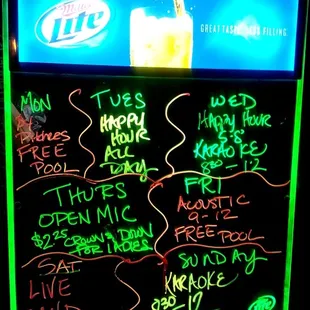 Miller
Lite
GREAT TASTE LESS FILLING
MON
Pitchers
FREE
POOL
TUES
HAPPY
HOUR
ALL
DAY
WED
HAPPY HOUR
KARAOKE
8:30 - 12
THURS
OPEN MIC
$2.25 CROWN & DOWN
FOR LADIES
FRI
ACOUSTIC
9-12
FREE POOL
SAT
LIVE
SUNDAY
KARAOKE